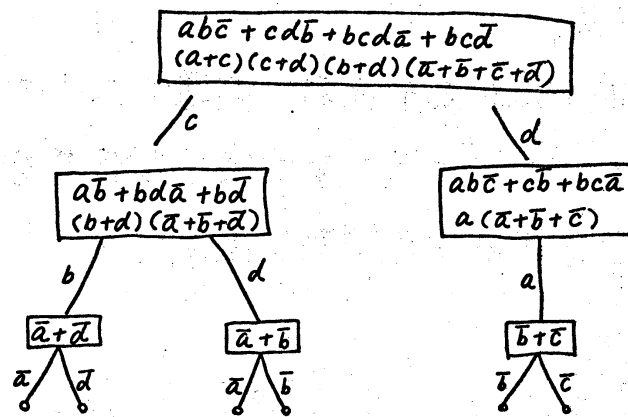 ab̄c̄ + cdb̄ + bcdā + bcd̄
(a+c)(c+d)(b+d)(ā+b̄+c̄+d̄)
c
d
ab̄ + bdā + bd̄
(b+d)(ā+b̄+d̄)
abc̄ + cb̄ + bcā
a(ā+b̄+c̄)
b
d
a
ā+d̄
ā+b̄
b̄+c̄
ā
d̄
ā
b̄
b̄
c̄